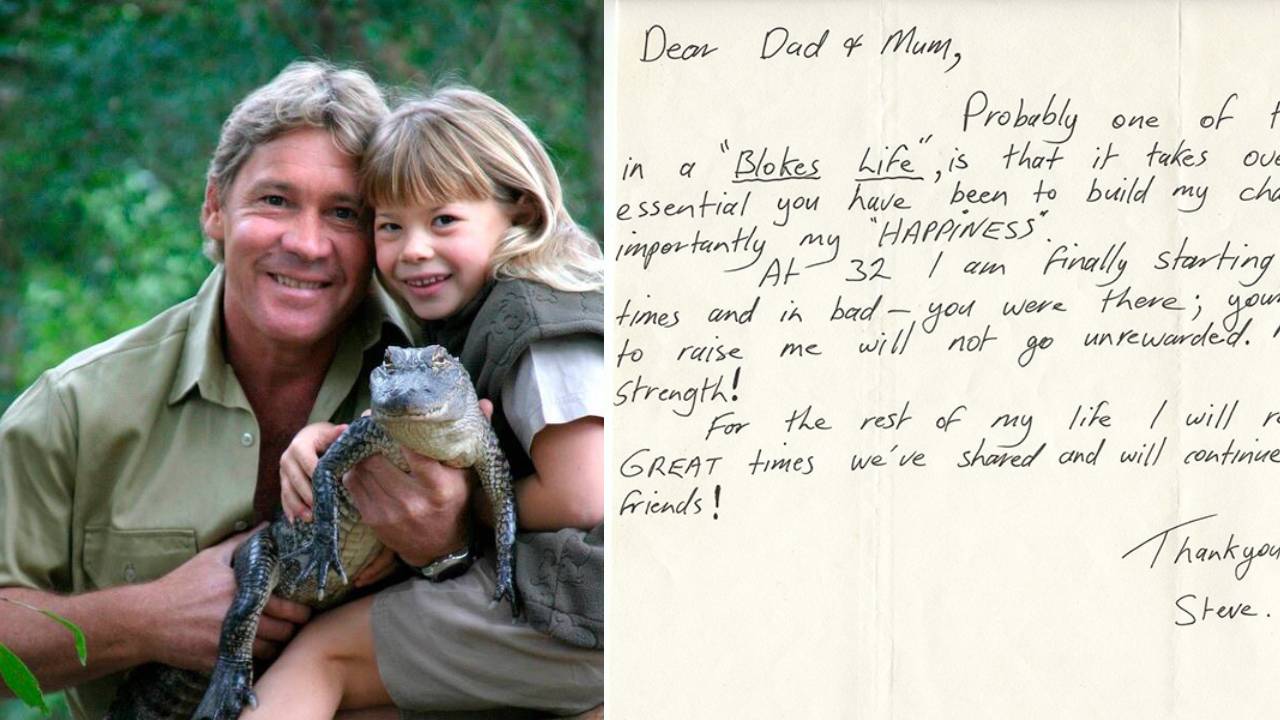 Dear Dad & Mum,
Probably one of
in a "Blokes Life", is that it takes
essential you have been to build my
importantly my "HAPPINESS".
At 32 I am finally starting
times and in bad – you were there;
to raise me will not go unrewarded.
strength!
For the rest of my life I will
GREAT times we've shared and will continue
friends!
Thankyou
Steve.